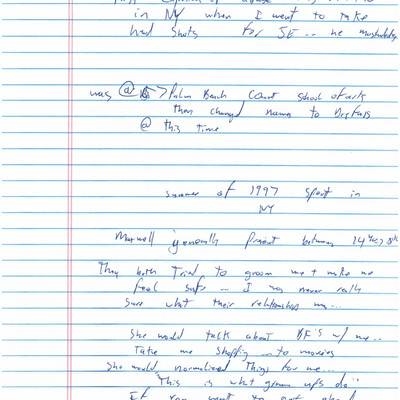 in NY when I went to take
head shots for JE.. he
was @ > Palm Beach County school of arts
then changed names to Dreyfuss
@ this time
summer of 1997 spent in
NY
Maxwell generally present between 14 yrs
They both tried to groom me + make me
feel safe... I was never really
sure what their relationship was...
She would talk about BF'S w/ me..
Take me shopping ... to movies
She would normalized things for me...
"This is what grown ups do"
IF you want to get